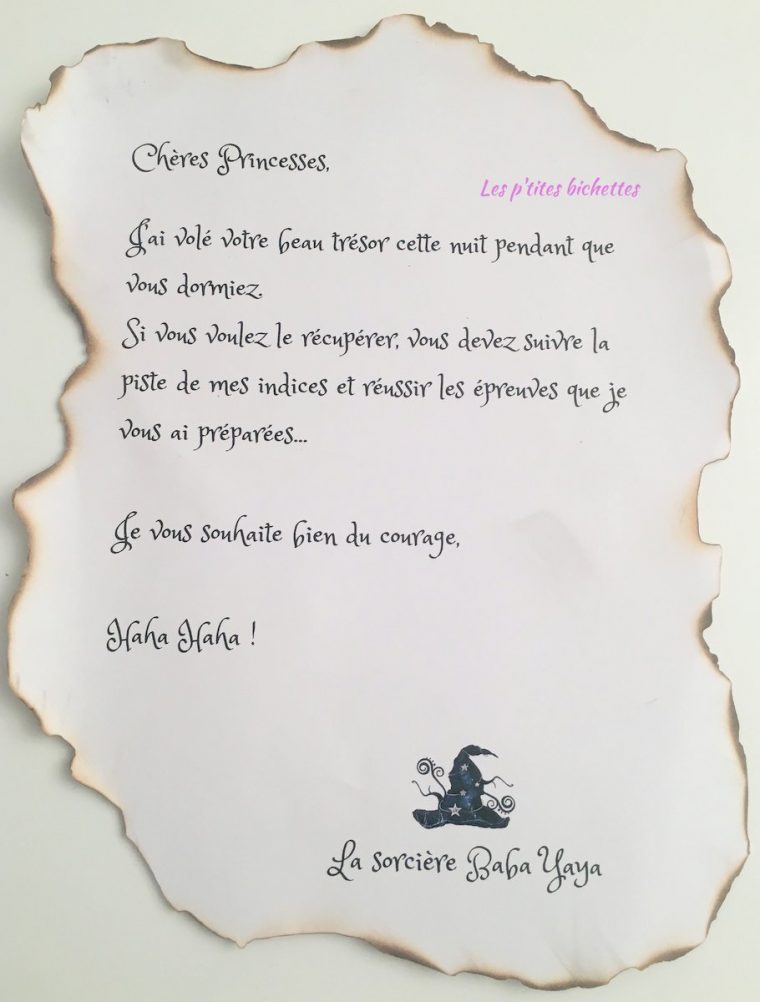 Chères Princesses,
Les p'tites bichettes
J'ai volé votre beau trésor cette nuit pendant que
vous dormiez.
Si vous voulez le récupérer, vous devez suivre la
piste de mes indices et réussir les épreuves que je
vous ai préparées...
Je vous souhaite bien du courage,
Haha Haha !
La sorcière Baba Yaya